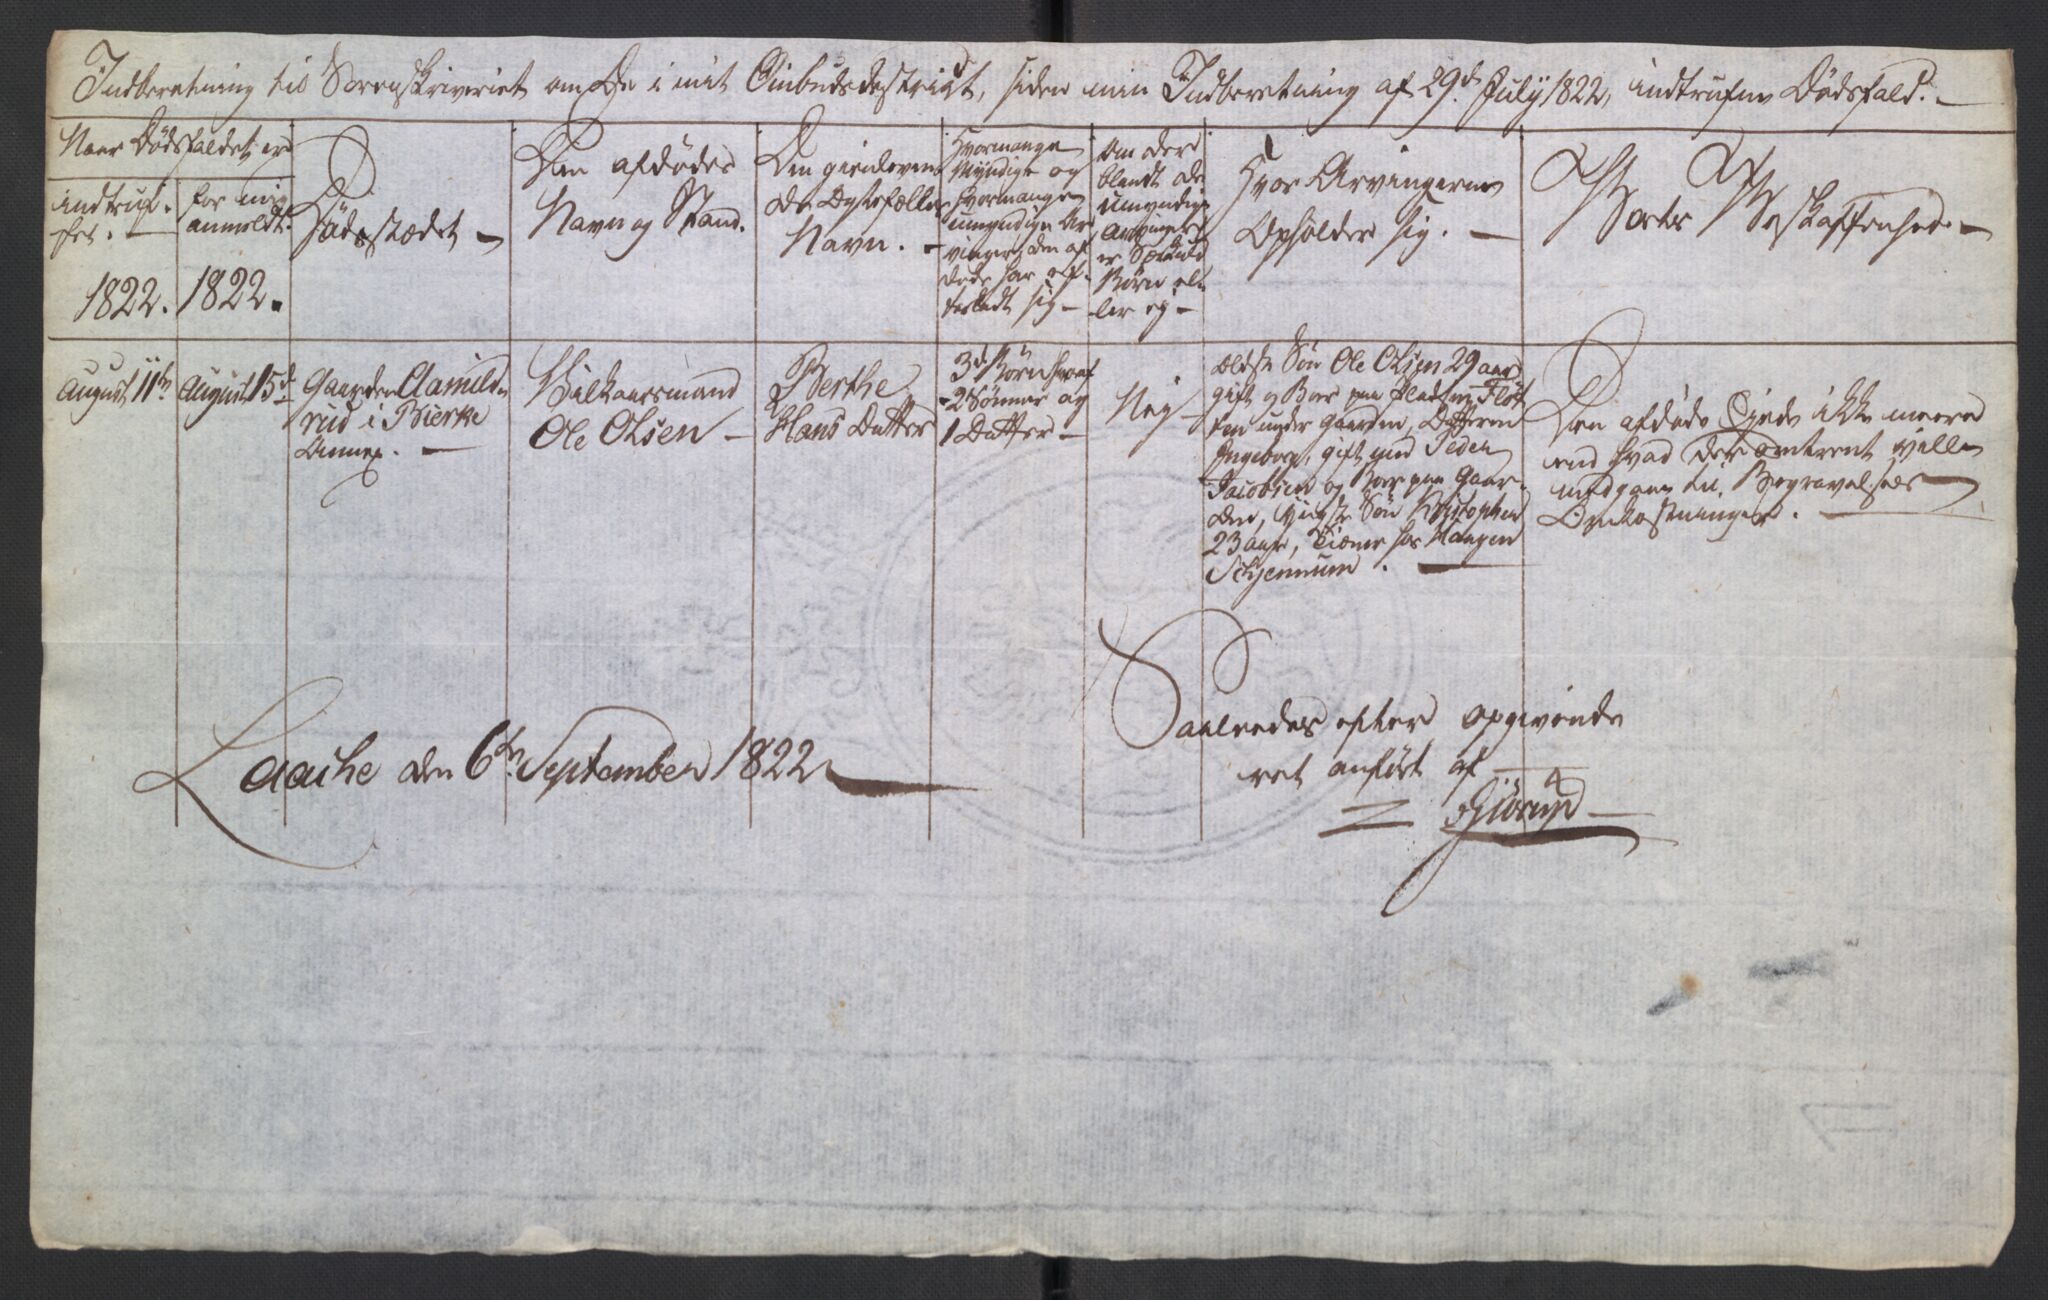 Indberetning til Sorenskriveriet om De i mit Ombudsdestrict, siden min Indberetning af 29de July 1822, indtrufne Dødsfald. —
Naar Dødsfaldet er
indtruf-
fet. —
1822.
for mig
anmeldt.
1822.
Dødsstædet —
Den afdødes
Navn og Stand.
Den gienleven-
de Ægtefælles
Navn. —
Hvormange
Myndige og
hvormange
umyndige Ar-
vinger den af-
døde har ef-
terladt sig —
Om der
blandt de
Umyndige
Arvinger
er Spæde
Børn el-
ler ej —
Hvor Arvingerne
Opholder sig. —
Boets Beskaffenhed —
August 11te
August 15de
Gaarden Clamild-
rud i Bierke
Annex. —
Vilkaarsmand
Ole Olsen —
Berthe
Hans Datter
3de Børn hvoraf
2 Sønner og
1 Datter —
Nej —
Ældste Søn Ole Olsen 29 aar
gift og Boer paa Pladsen Fløt
ten under Gaarden, Datteren
Ingeborg, gift med Peder
Jacobsen og Boer paa Gaar-
den, Yngste Søn Kristopher
23 aar, Tiener hos Haagen
Schjennum. —
Den afdøde Ejede ikke meere
end hvad der omtrent ville
medgaae til Begravelses
Omkostninger. —
Laache den 6te September 1822
Saaledes efter opgivende
ret anført af —